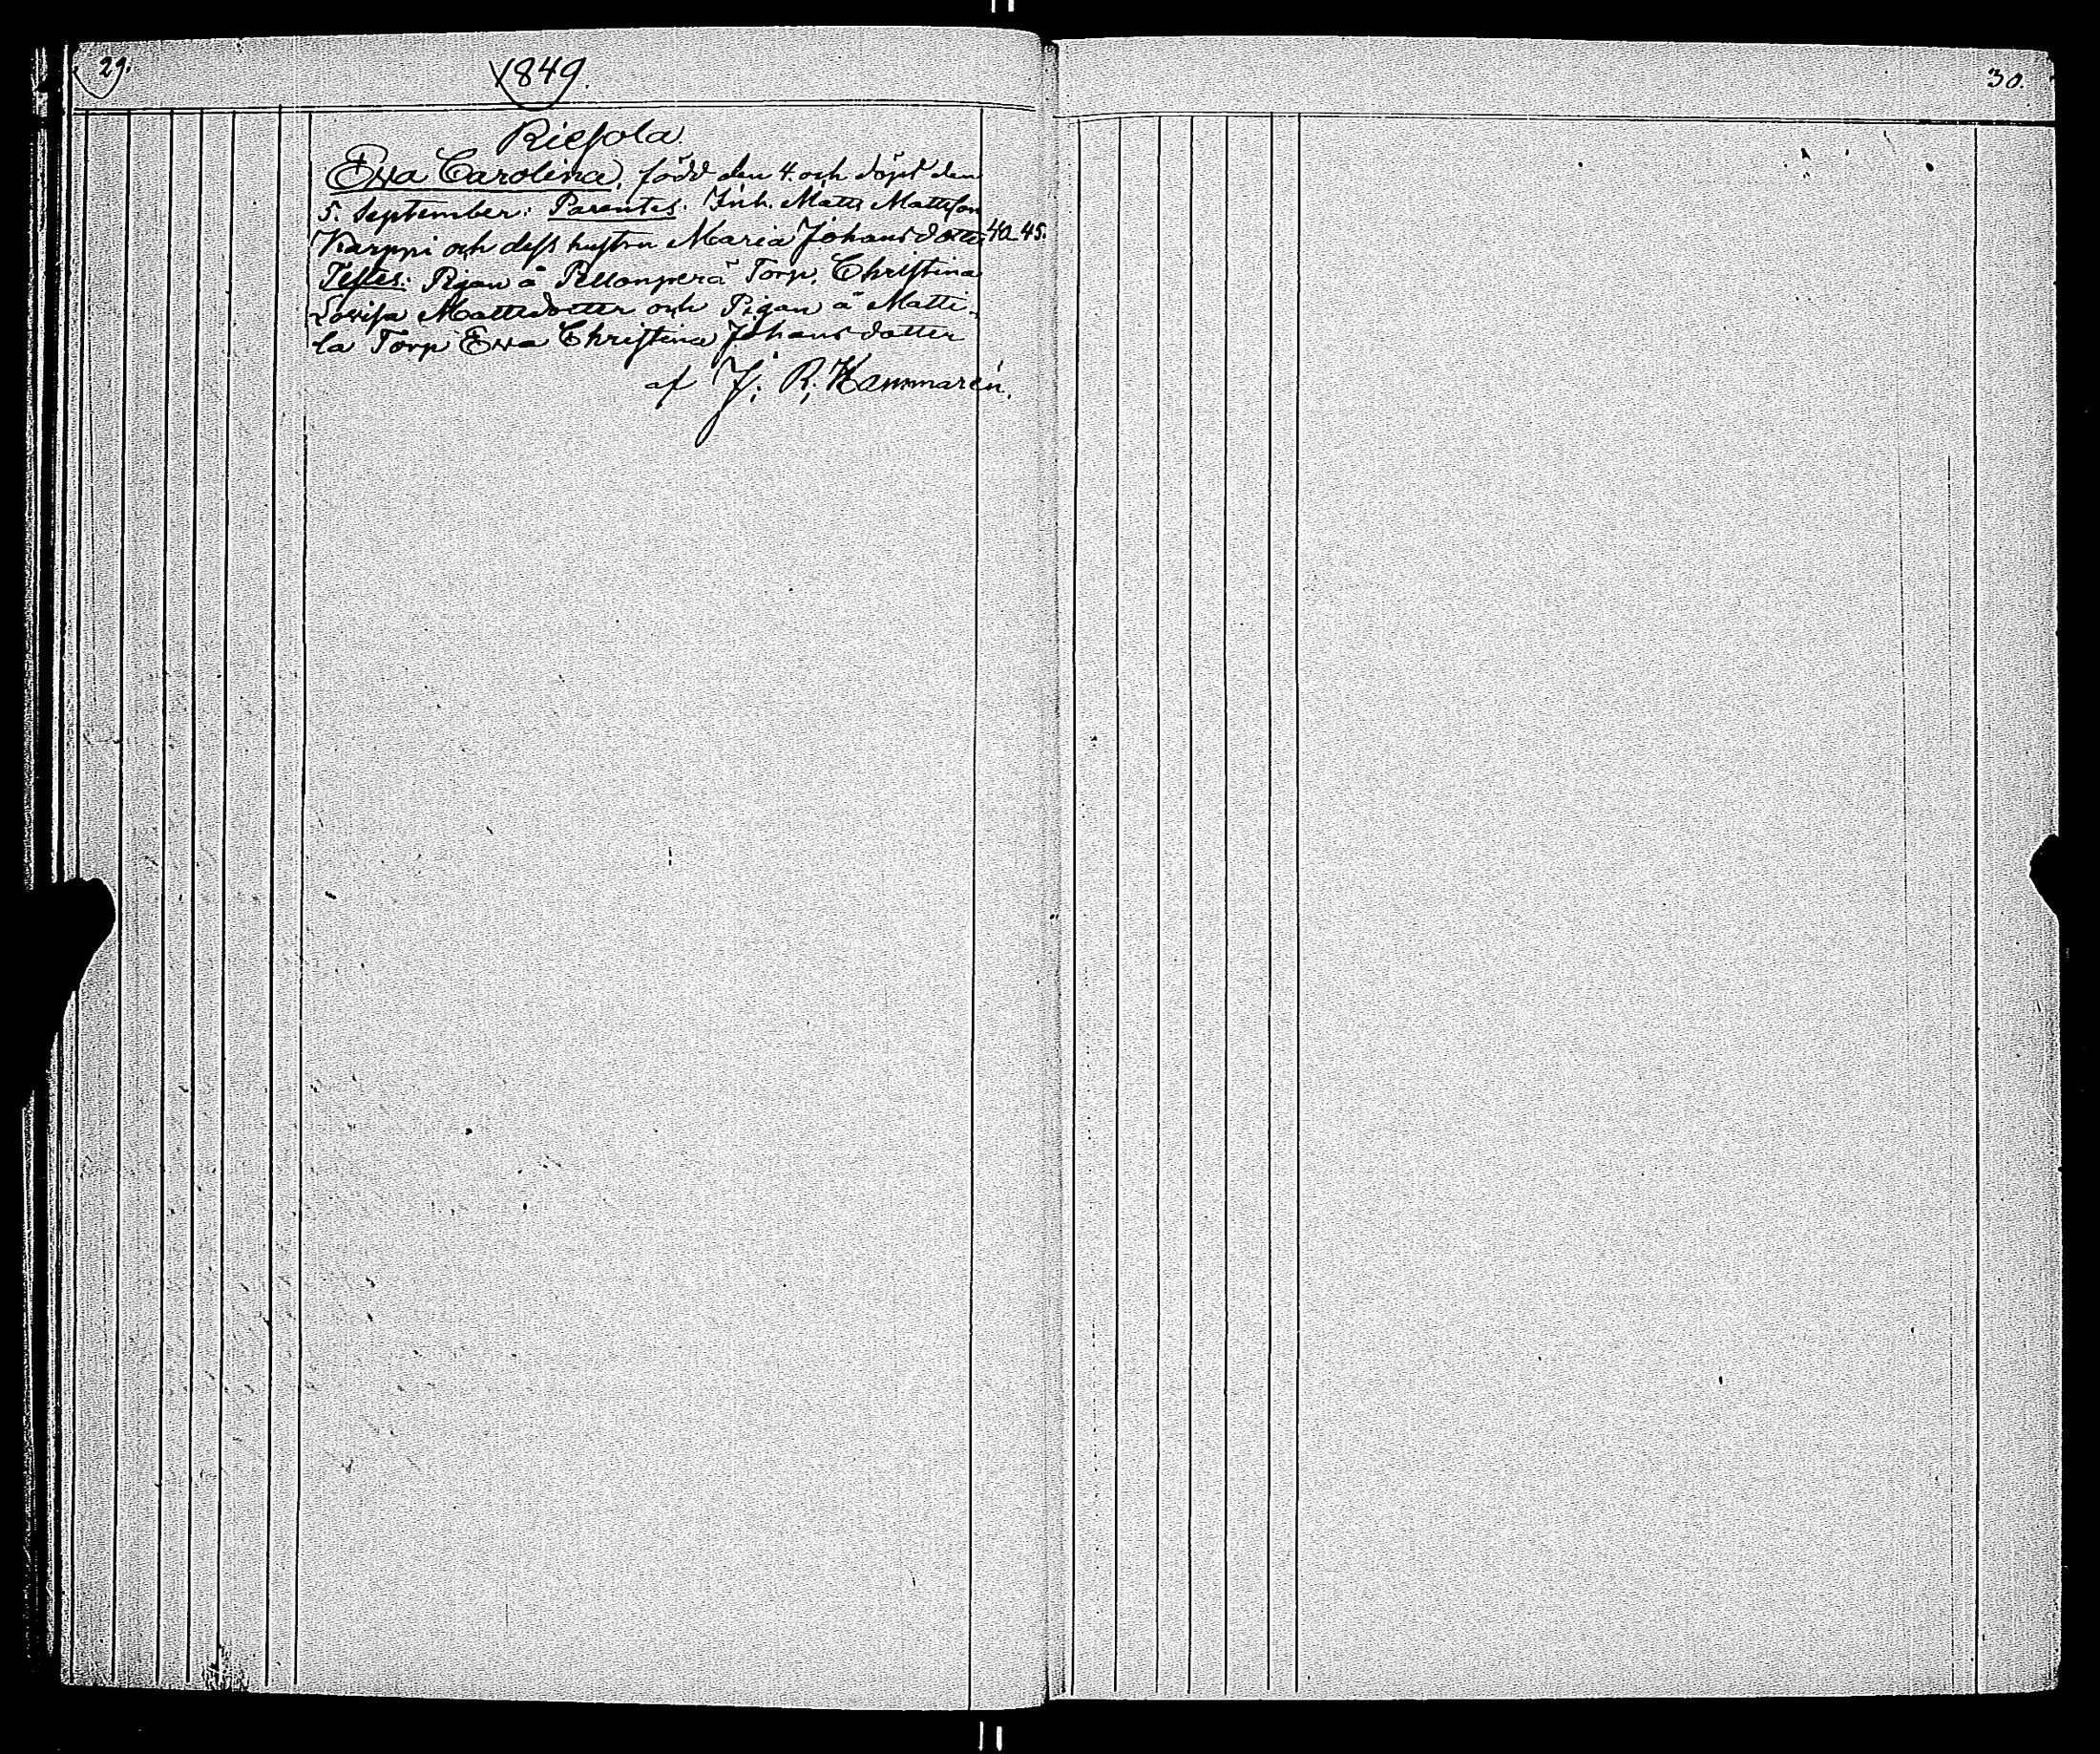 29.
1849.
Riesola.
Ewa Carolina, född den 4. och döpt den
5. September: Parentes: Inh. Matts Mattsson
Karppi och dess hustru Maria Johansdotter, 40-45.
Testes: Pigan å Pellonperä Torp, Christina
Lovisa Mattsdotter och Pigan å Matti-
la Torp Ewa Christina Johansdotter
af J. R. Hammarén.
30.